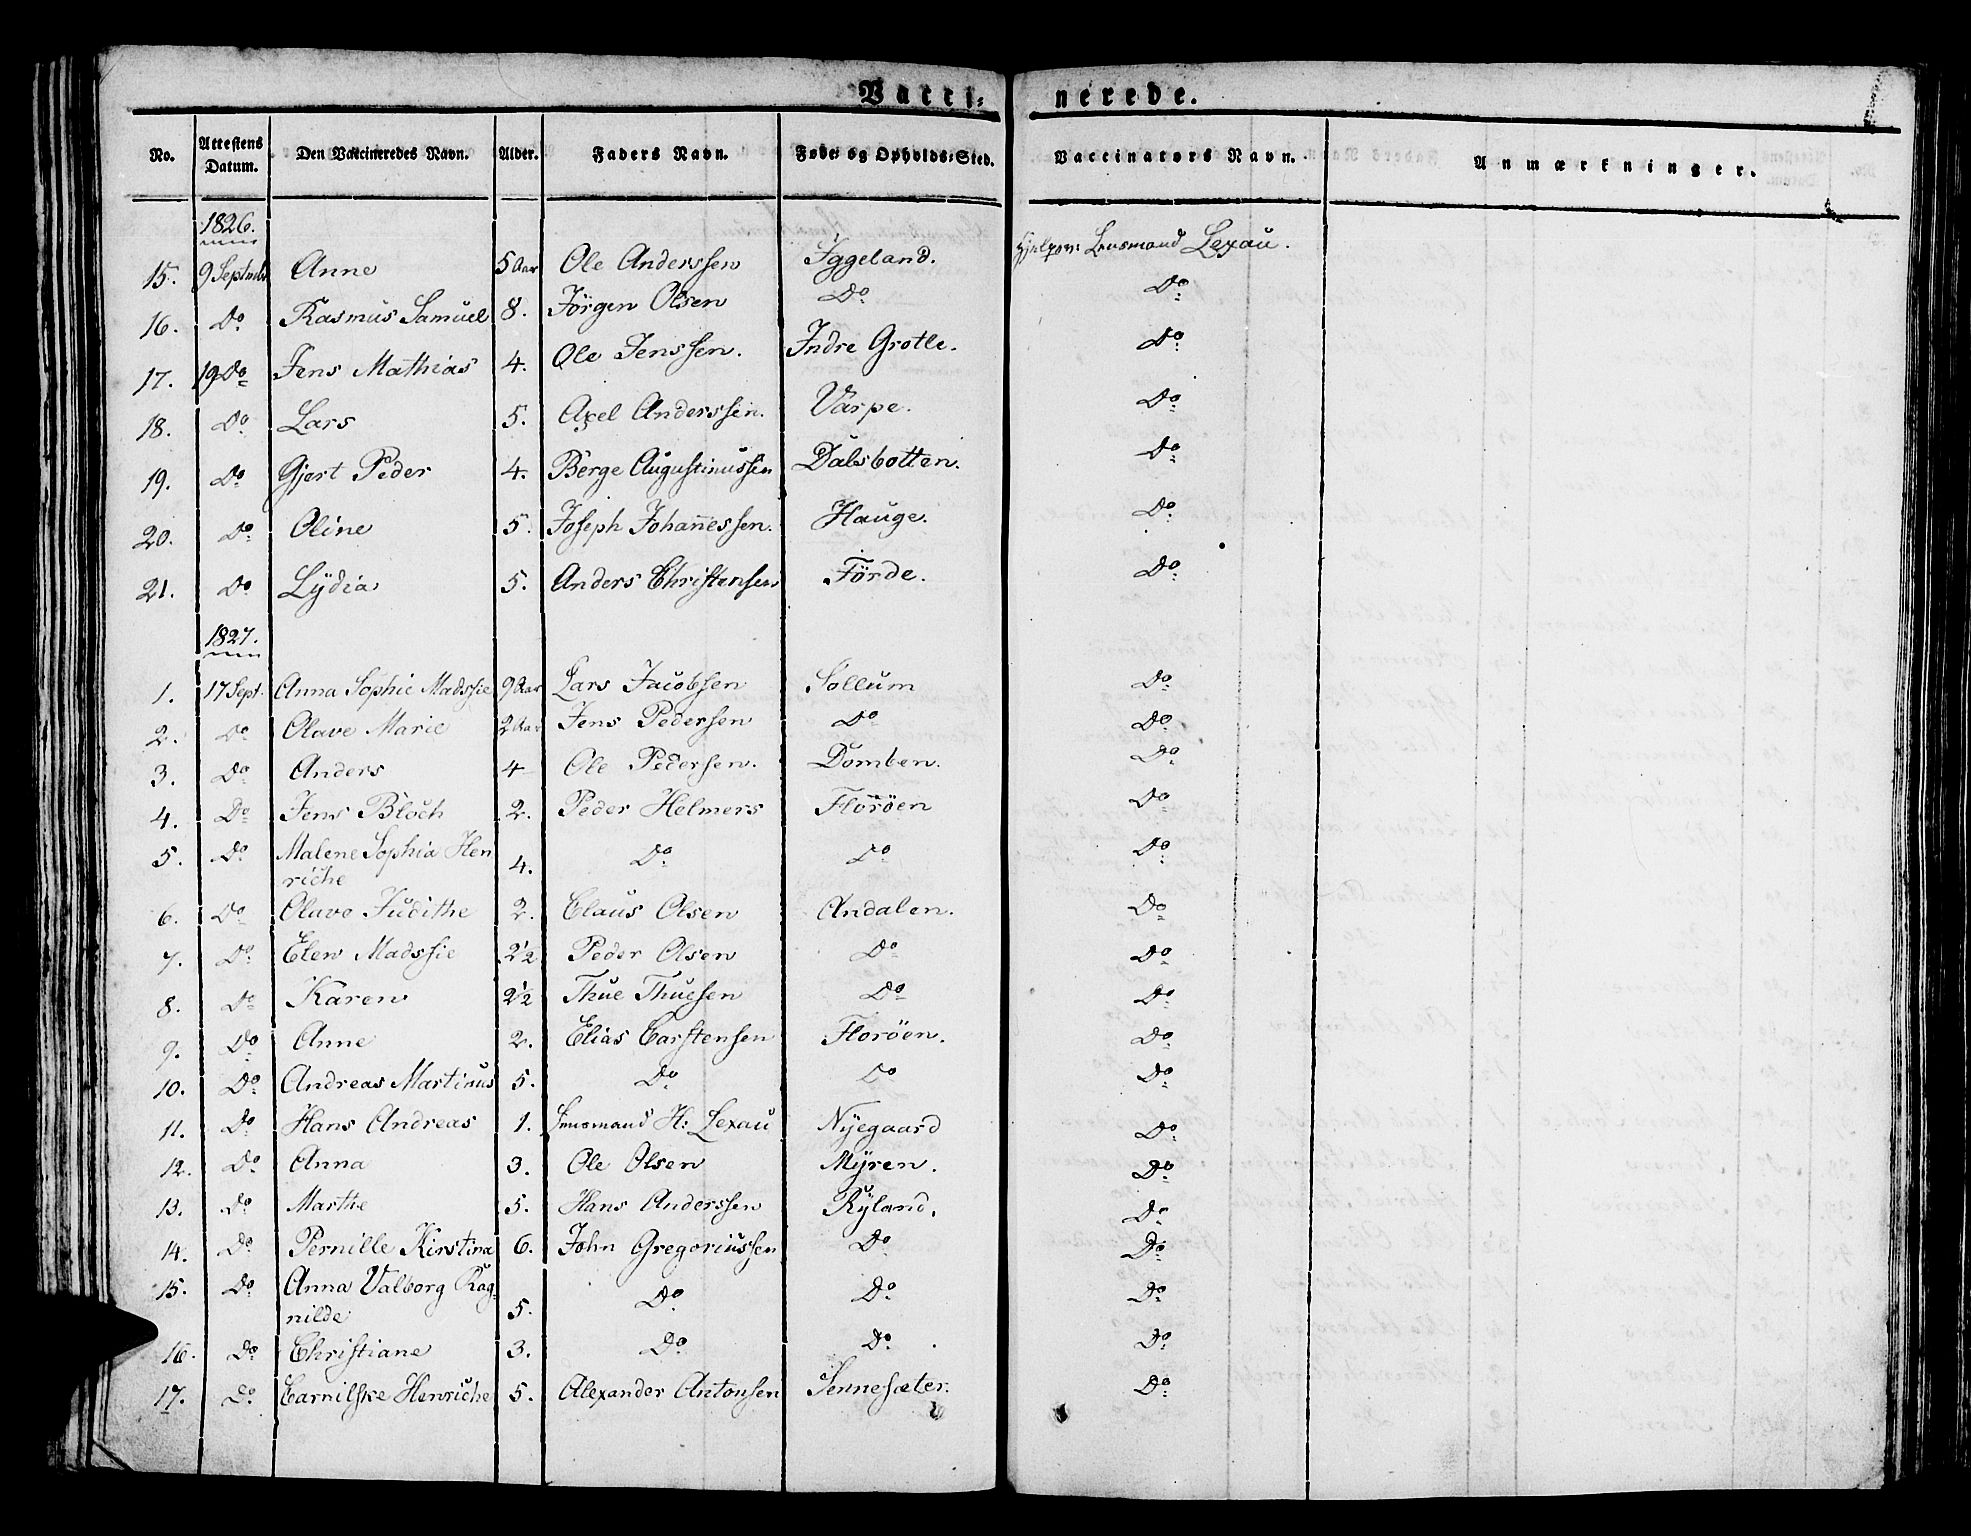 Vacci-nerede.
No. Attestens Datum. Den Vaccineredes Navn. Alder. Faders Navn. Føde- og Opholds-Sted. Vaccinators Navn. Anmærkninger.
1826.
15. 9 Septmbr Anne 5 Aar Ole Anderssen Iggeland. Hjelper: Lensmand Lexau.
16. Do. Rasmus Samuel 8. Jörgen Olsen Do Do
17. 19 Do Jens Mathias 4. Ole Jenssen. Indre Grotle. Do
18. Do Lars 5. Axel Anderssen. Varpe. Do
19. Do Gjert Peder 4. Berge Augustinussen Dalsbotten. Do
20. Do Oline 5. Joseph Johannessen. Hauge. Do
21. Do Lÿdia 5. Anders Christensen Förde. Do
1827.
1. 17 Sept. Anna Sophie Madssie 9 Aar Lars Jacobsen Sollum Do
2. Do Olave Marie 2 Aar Jens Pedersen Do Do
3. Do Anders 4 Ole Pedersen. Domben. Do
4. Do Jens Bloch 2. Peder Helmers Floröen Do
5. Do Malene Sophia Hen
riche 4. Do Do Do
6. Do Olave Judithe 2. Claus Olsen Andalen. Do
7. Do Elen Madssie 2½ Peder Olsen Do Do
8. Do Karen 2½ Thue Thuesen Do Do
9. Do Anne 2. Elias Carstensen Floröen. Do
10. Do Andreas Martinus 5. Do Do Do
11. Do Hans Andreas 1. Lensmand H: Lexau Nÿegaard Do
12. Do Anna 3. Ole Olsen Mÿren. Do
13. Do Marthe 5. Hans Anderssen Rÿland. Do
14. Do Pernille Kirstina 6. John Gregoriussen Do Do
15. Do Anna Valborg Rag-
nilde 5. Do Do Do
16. Do Christiane 3. Do Do. Do
17. Do Carnilske Henriche 5. Alexander Antonsen Sennesæter. Do